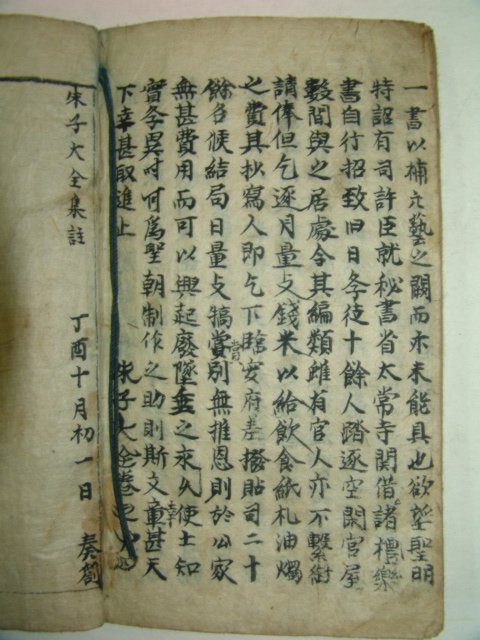 一書以補六藝之闕而亦未能具也欲望聖明
特詔有司許臣就秘書省太常寺關借諸禮樂
書自行招致旧日学徒十餘人踏逐空閑官屋
數間與之居處令其編類雖有官人亦不繫銜
請俸但乞逐月量支錢米以給飮食紙札油燭
之費其抄寫人即乞下臨安府差撥貼司二十
餘名候結局日量支犒賞別無推恩則於公家
無甚費用而可以興起廢墜垂之永久使士知
實学異時可爲聖朝制作之助則斯文幸甚天
下幸甚取進止 朱子大全卷之
朱子大全集註 丁酉十月初一日 奏劄